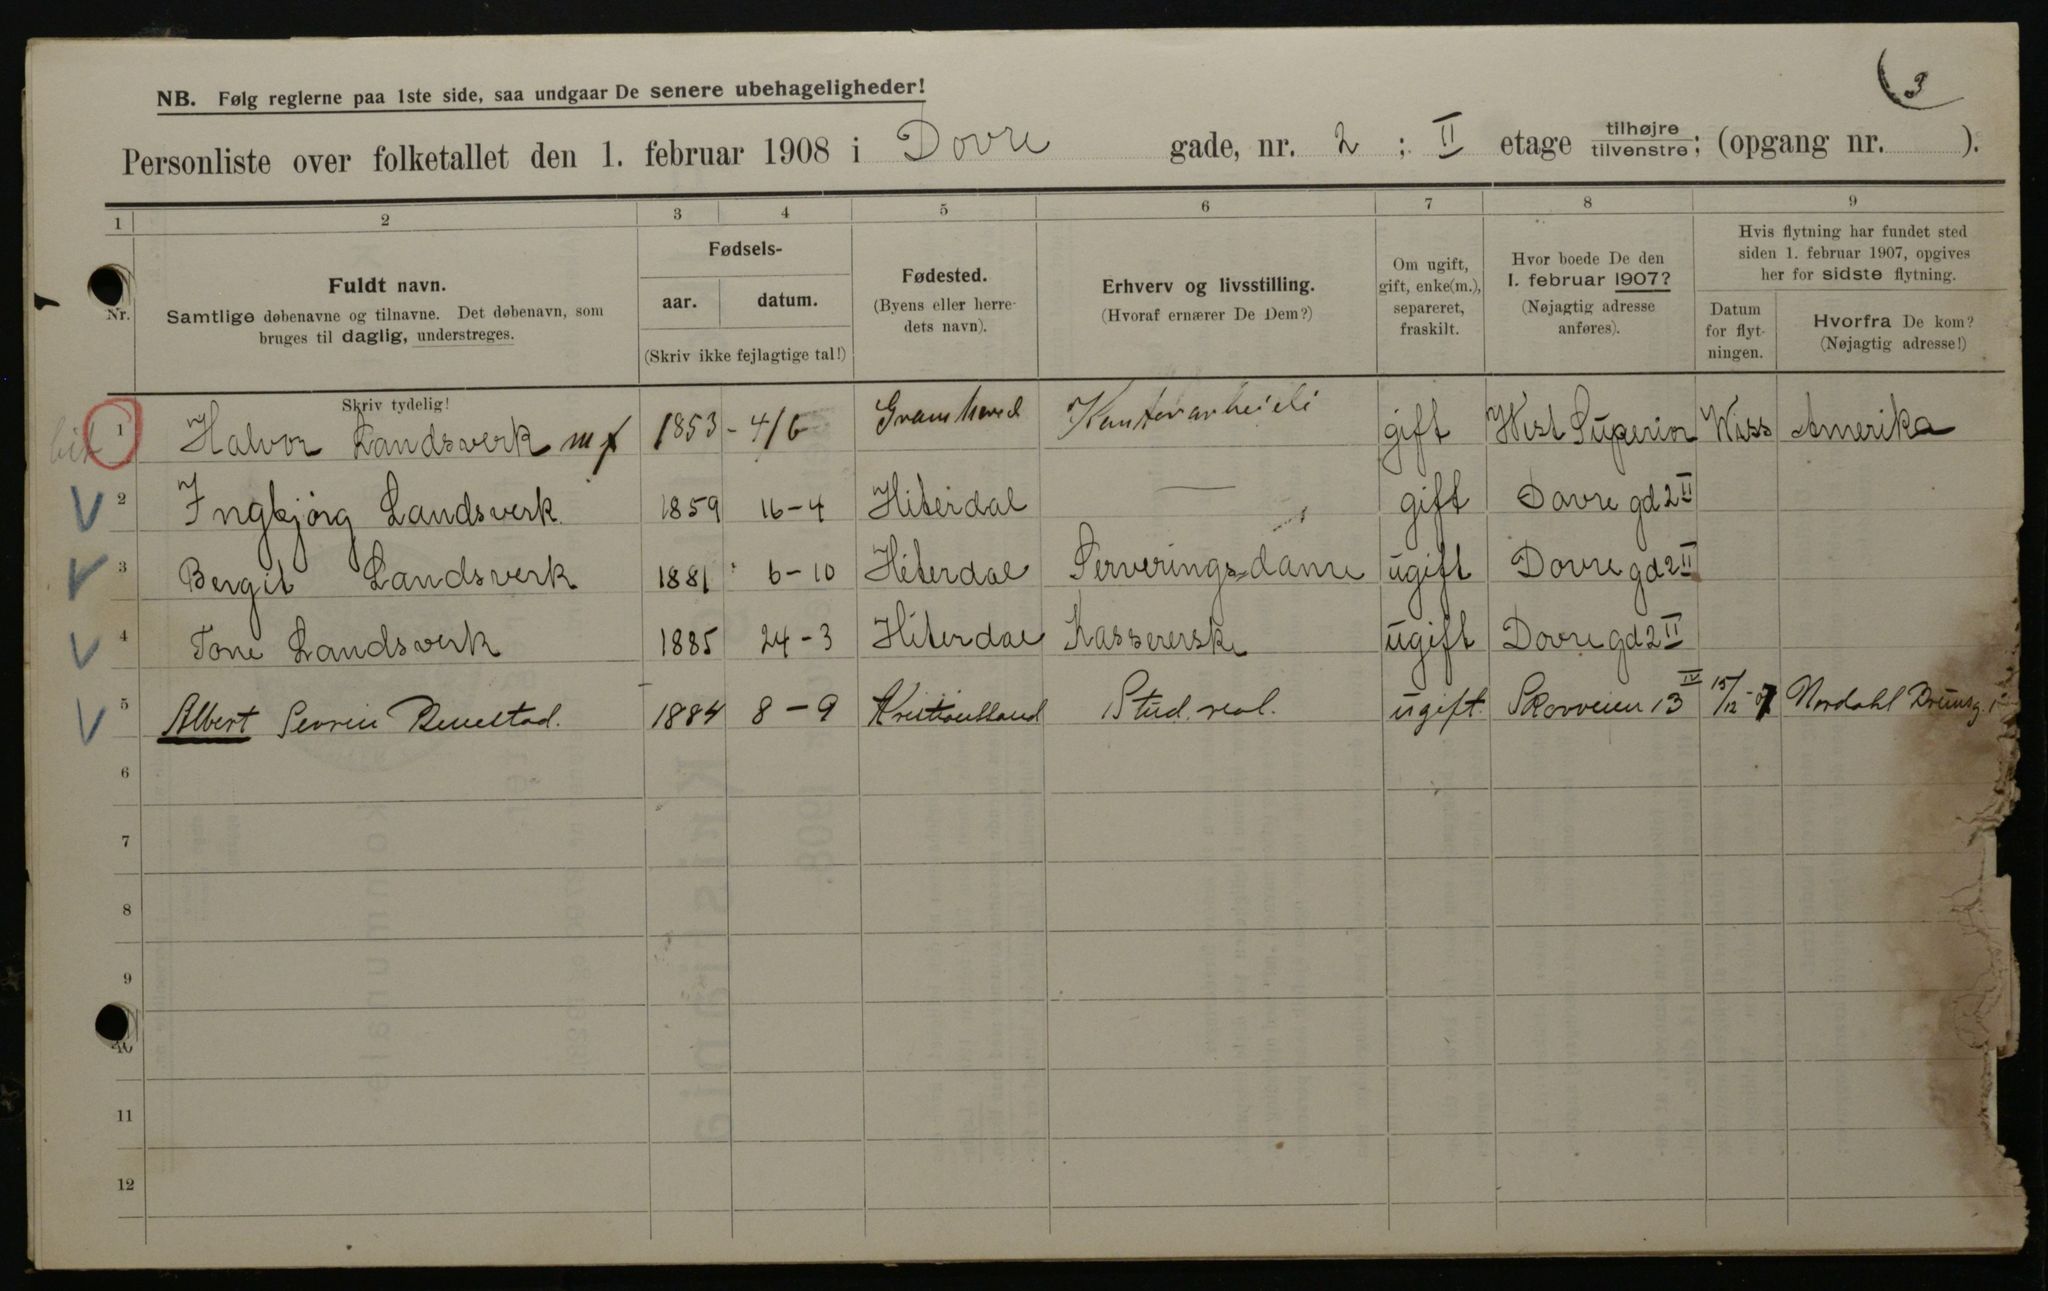 3
NB. Følg reglerne paa 1ste side, saa undgaar De senere ubehageligheder!
Personliste over folketallet den 1. februar 1908 i Dovre gade, nr. 2 ; II etage tilhøjre tilvenstre; (opgang nr. ).
1 2 3 4 5 6 7 8 9
Nr.
Fuldt navn.
Samtlige døbenavne og tilnavne. Det døbenavn, som
bruges til daglig, understreges.
Fødsels-
aar. datum.
(Skriv ikke fejlagtige tal!)
Fødested.
(Byens eller herre-
dets navn).
Erhverv og livsstilling.
(Hvoraf ernærer De Dem?)
Om ugift,
gift, enke(m.),
separeret,
fraskilt.
Hvor boede De den
1. februar 1907?
(Nøjagtig adresse
anføres).
Hvis flytning har fundet sted
siden 1. februar 1907, opgives
her for sidste flytning.
Datum
for flyt-
ningen.
Hvorfra De kom?
(Nøjagtig adresse!)
Skriv tydelig!
1 Halvor Landsverk 1853 - 4/6 gift West Superior Wiss Amerika
2 Ingbjörg Landsverk 1859 16-4 Hiterdal — gift Dovre gd 2 II
3 Bergit Landsverk 1881 6-10 Hiterdal Serveringsdame ugift Dovre gd 2 II
4 Tone Landsverk 1885 24-3 Hiterdal Kassererske ugift Dovre gd 2 II
5 Albert 1884 8-9 Kristianssand Stud. real. ugift. Skovveien 13 IV 15/12-07 Nordahl Brunsg.
6
7
8
9
10
11
12